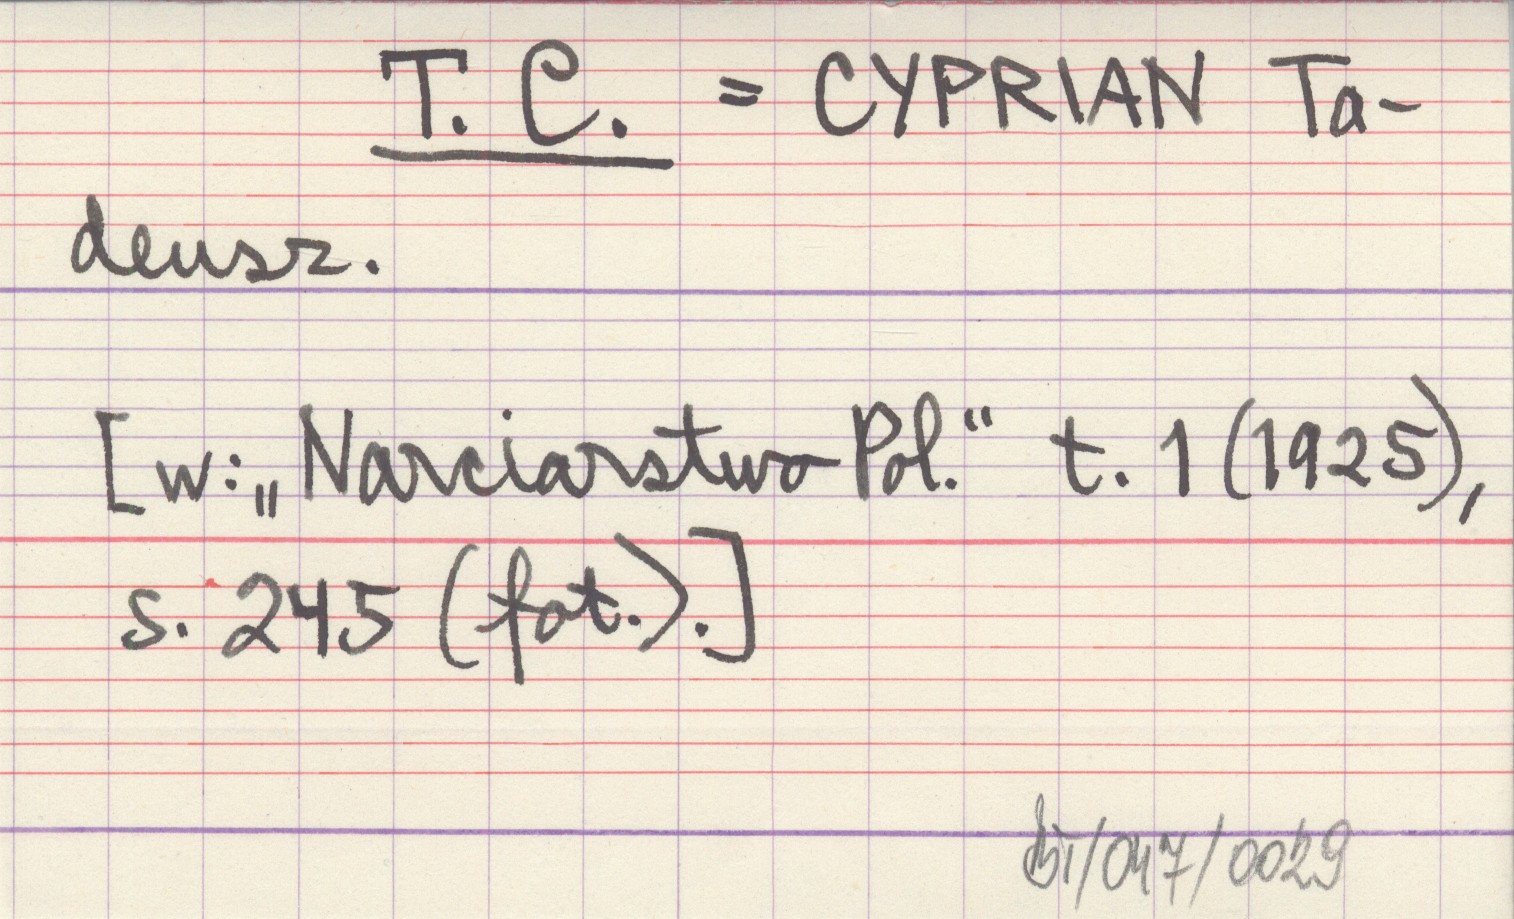 T. C. = CYPRIAN Ta-
deusz.
[w: „Narciarstwo Pol." t. 1 (1925),
s. 245 (fot.).]
/047/0029